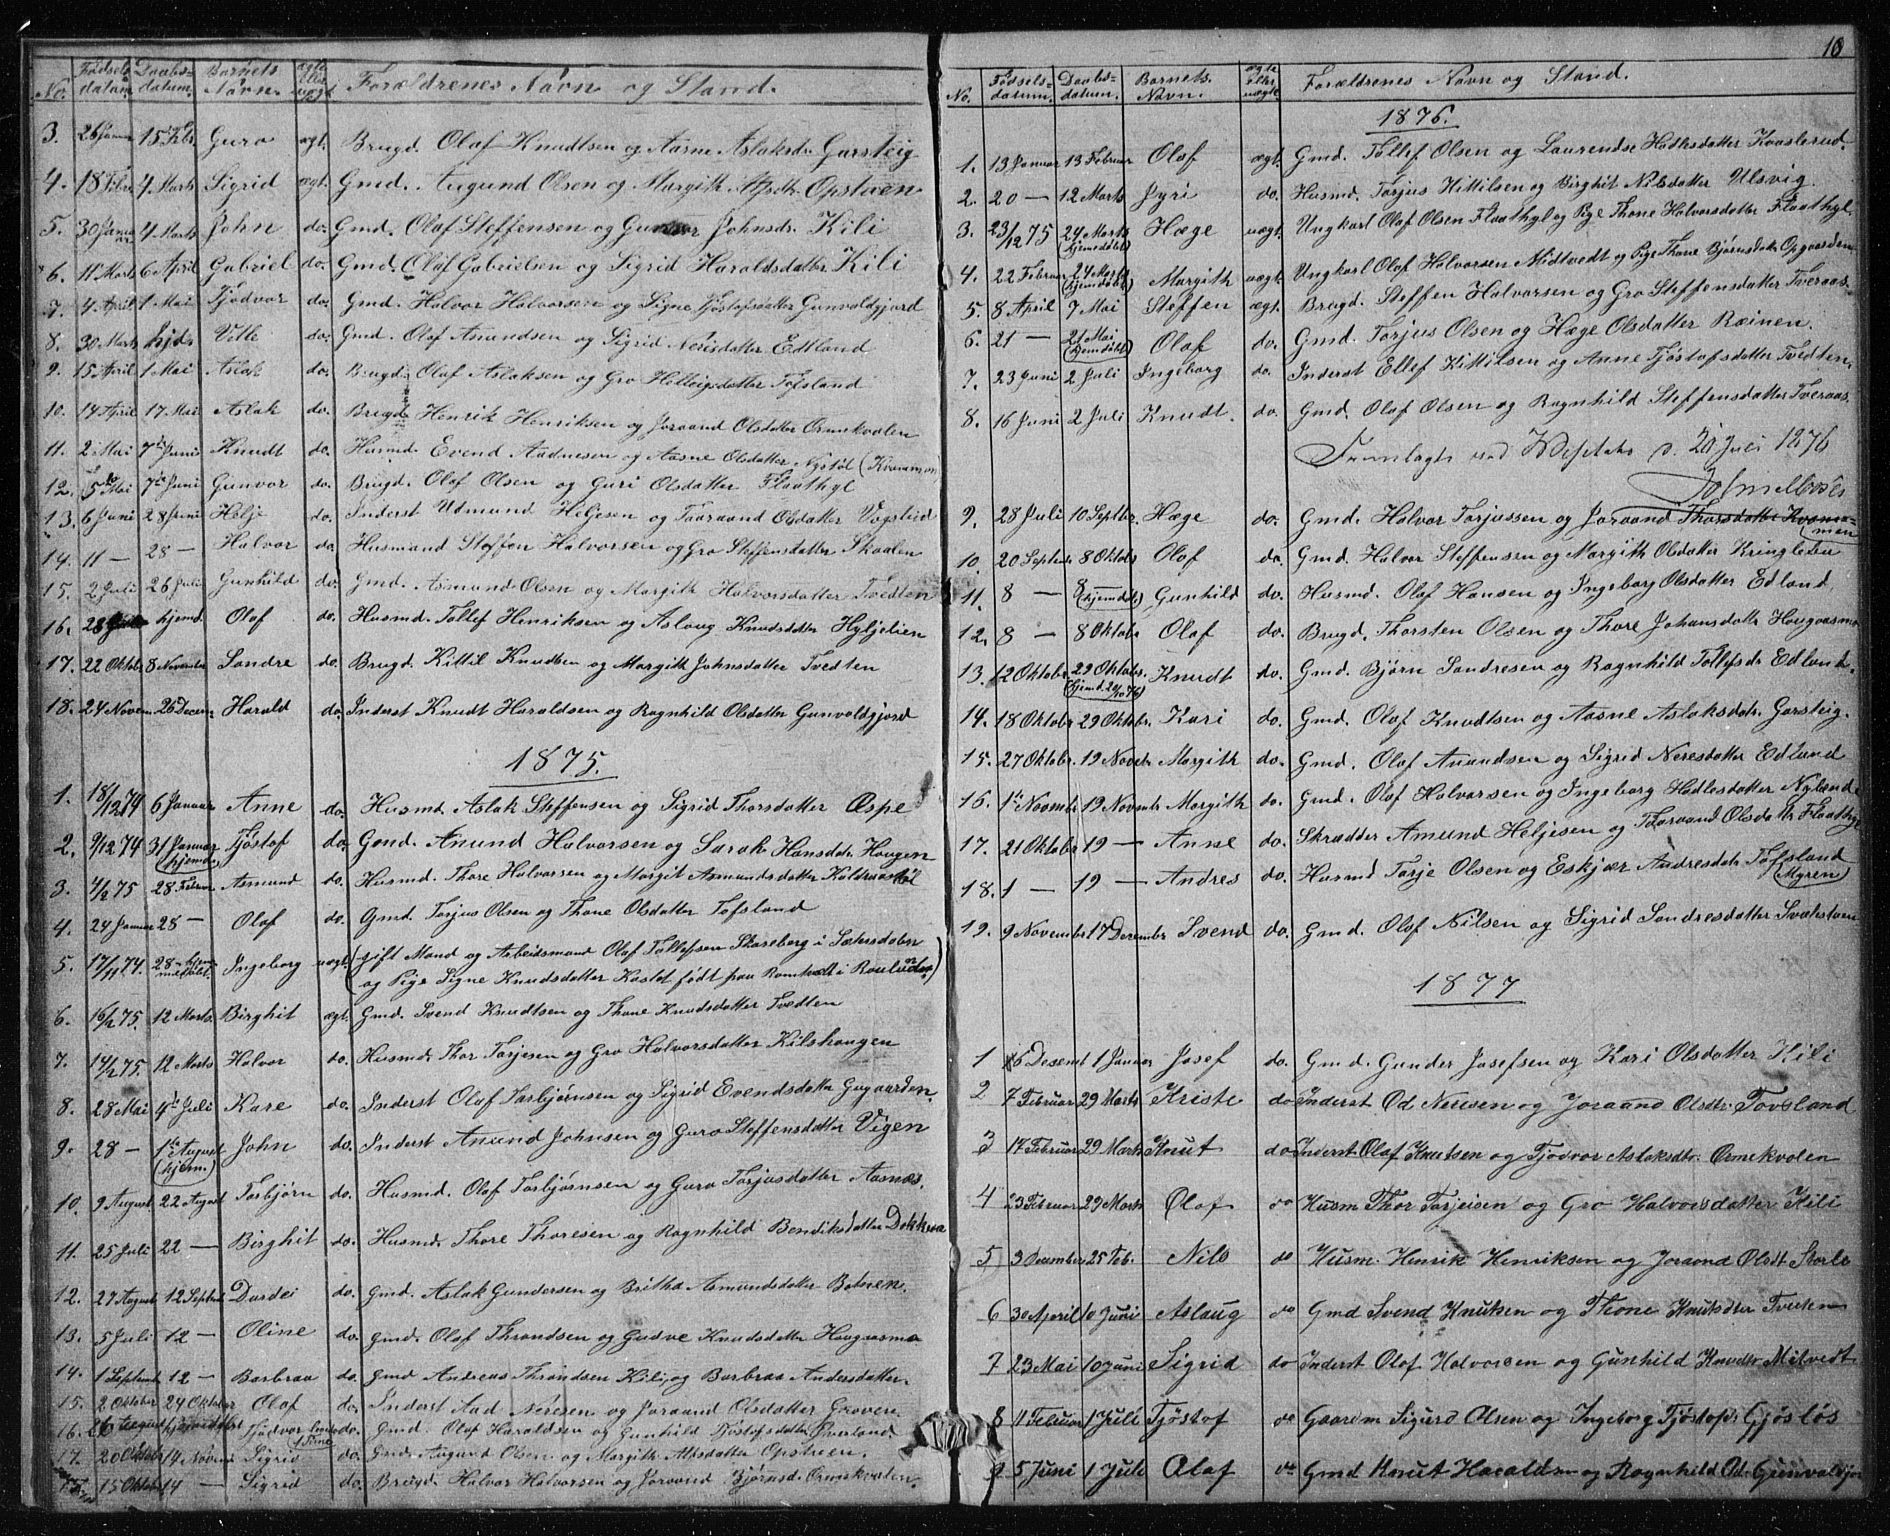 No. Fødsels- datum. Daabs- datum. Barnets Navn. ægte eller uægt. Forældrenes Navn og Stand.
3. 26 Januar 15 Febr. Guro ægt. Brugd. Olaf Knudtsen og Aasne Aslaksdr. Garsteig
4. 18 Febr. 4 Marts Sigrid ægt. Gmd. Augund Olsen og Margith Alfsdtr. Opstveen
5. 30 Januar 4 Marts John do. Gmd. Olaf Steffensen og Gunvor Johnsdr. Kili
6. 11 Marts 6 April Gabriel do. Gmd. Olaf Gabrielsen og Sigrid Haraldsdatter Kili
7. 4 April 1 Mai Tjødvor do. Gmd. Halvor Halvorsen og Signe Tjøstofsdatter Gunvaldgjord
8. 30 Marts hjd. Vetle do. Gmd. Olaf Amundsen og Sigrid Nerisdatter Edtland
9. 15 April 1 Mai Aslak do. Brugd. Olaf Aslaksen og Gro Helleigsdatter Tofsland
10. 14 April 17 Mai Aslak do. Brugd. Henrik Henriksen og Joraand Olsdatter Ormekvolen
11. 2 Mai 7de Juni Knudt do. Husmd. Evend Aadnesen og Aasne Olsdatter Nystøl (Kvammen)
12. 5 Mai 7de Juni Gunvor do. Brugd. Olaf Olsen og Guri Olsdatter Flaathyl
13. 6 Juni 28 Juni Helje do. Inderst Udmund Heljesen og Taaraand Olsdatter Vogsteid
14. 11 — 28 — Halvor do. Husmand Steffen Halvorsen og Gro Steffensdatter Skaalen
15. 2 Juli 26 Juli Gunhild do. Gmd. Asmund Olsen og Margith Halvorsdatter Tvedten
16. 28 hjemd. Olaf do. Husmd. Tollef Henriksen og Aslaug Knudsdatter Hyljelien
17. 22 Oktobr 8 November Sondre do. Brugd. Kittil Knudtsen og Margith Johnsdatter Tvedten
18. 24 Novem. 26 Decem. Harald do. Inderst Knudt Haraldsen og Ragnhild Olsdatter Gunvaldgjord
1875.
1. 18/12 74 6 Januar Anne do. Husmd. Aslak Steffensen og Sigrid Thorsdatter Øspe
2. 9/12 74 31 Januar (hjemd.) Tjøstof do. Gmd. Anund Halvorsen og Sarak Hansdatr. Haugen
3. 4/2 75 28 Februar Asmund do. Husmd. Thore Halvorsen og Margit Asmundsdatter Koldraastøl
4. 24 Januar 28 — Olaf do. Gmd. Torjus Olsen og Thone Olsdatter Tofsland
5. 17/11 74. 28 — hjemmedøbt. Ingeborg uægt. (gift Mand og Arbeidsmand Olaf Tollefsen Skaraberg i Sætersdalen
og Pige Signe Knudsdatter Kostøl født paa Romtvedt i Rauland)
6. 16/2 75. 12 Marts. Birghit ægt. Gmd. Svend Knudtsen og Thone Knudsdatter Tvedten
7. 14/2 75. 12 Marts Halvor do. Husmd. Thor Torjesen og Gro Halvorsdatter Kilshaugen
8. 28 Mai 4de Juli Kare do. Inderst Olaf Torbjørnsen og Sigrid Evendsdatter Gugaarden.
9. 28 — 1ste August (hjem.) John do. Inderst Anund Johnsen og Guro Steffensdatter Vigen
10. 9 August 22 August Torbjørn do. Husmd. Olaf Torbjørnsen og Guro Torjusdatter Aasnes.
11. 25 Juli 22 — Birghit do. Husmd. Thore Thoresen og Ragnhild Bendiksdatter Dokkraa
12. 27 August 12 Septmb Dordei do. Gmd. Aslak Gundersen og Britha Asmundsdatter Botnen.
13. 5 Juli 12 — Oline do. Gmd. Olaf Throndsen og Gudve Knudsdatter Haugaasmo
14. 1 Septemb 12 — Barbraa do. Gmd Andreas Throndsen Kili, og Barbraa Andersdatter.
15. 2 Oktober 24 Oktober Olaf do. Inderst Aad Neresen og Joraand Olsdatter Groven
16. 26 August hjemmedøbt Tjødvor do. Gmd. Olaf Haraldsen og Gunhild Tjøstofsdatter Øverland
17. 20 Oktobr 14 Novem Sigrid do. Gmd. Augund Olsen og Margith Alfsdatter Opstveen.
15 Oktobr 14 — Sigrid do. Brugd. Halvor Halvorsen og Joraand Bjørnsd. Ormekvolen.
10
No. Fødsels- datum. Daabs- datum. Barnets Navn. ægte eller uægte Forældrenes Navn og Stand.
1876.
1. 13 Januar 13 Februar Olaf ægt. Gmd. Tollef Olsen og Laurendse Kaaslerud.
2. 20 — 12 Marts Jyri do. Husmd. Torjus Kittilsen og Birghit Nilsdatter Ulsvig.
3. 23/12 75 24 Marts (hjemdøbt) Hæge uægt. Ungkarl Olaf Olsen Flaathyl og Pige Thone Halvorsdatter Flaathyl.
4. 22 Februar 24 Marts (hjemdøbt) Margith uægt. Ungkarl Olaf Halvorsen Midtvedt og Pige Thone Bjørnsdatr Opgaarden
5. 8 April 7 Mai Steffen ægt. Brugd. Steffen Halvorsen og Gro Steffensdatter Tveraas.
6. 21 — 21 Mai (hjemdøbt) Olaf do. Gmd. Torjus Olsen og Hæge Olsdatter Reinen.
7. 23 Juni 2 Juli Ingeborg do. Inderst Ellef Kittilsen og Anne Tjøstofsdatter Tvedten.
8. 16 Juni 2 Juli Knudt. do. Gmd. Olaf Olsen og Ragnhild Steffensdatter Tveraas.
Fremlagt ved d. 20 Juli 1876
9. 28 Juli 10 Septbr. Hæge do. Gmd. Halvor Torjussen og Joraand Thorsdatter Kvammen
10. 20 Septmbr 8 Oktobr Olaf do. Gmd. Halvor Steffensen og Margith Olsdatter Kringlelien
11. 8 — 8 — (hjemdøbt) Gunhild do. Husmd. Olaf Hansen og Ingeborg Olsdatter Edland
12. 8 — 8 Oktobr Olaf do. Brugd. Thorsten Olsen og Thore Johansdatr Haugaasmo
13. 12 Oktobr 29 Oktobr. (hjemd. 20/10 76) Knudt do. Gmd. Bjørn Sondresen og Ragnhild Tollefsdr. Edland.
14. 18 Oktobr 29 Oktobr. Kari do. Gmd. Olaf Knudtsen og Aasne Aslaksdatr. Garsteig.
15. 27 Oktobr. 19 Novebr Margith do. Gmd. Olaf Anundsen og Sigrid Neresdatter Edland
16. 1ste Novembr 19 Novembr Margith do. Gmd. Olaf Halvorsen og Ingeborg Hadlesdatter Nyland
17. 21 Oktobr 19 — Anne do. Skrædder Amund Heljesen og Taaraand Olsdatr Flaathyl
18. 1 — 19 — Andres do. Husmd Torje Olsen og Eskjær Andresdatr Tofsland (Myren)
19. 9 Novembr 17 Decembr Svend do. Gmd. Olaf Nilsen og Sigrid Sondresdatter Svalestveen
1877
1 16 Desemb 1 Januar Josef do. Gmd. Gunder Josefsen og Kari Olsdatter Kili
2 7 Februar 29 Marts Kristi do Inderst Od Neresen og Joraand Olsdtr. Tovsland
3 17 Februar 29 Marts Knut do Inderst Olaf Knutsen og Tjødvor Aslaksdtr. Ormekvolen
4 23 Februar 29 Marts Olaf do Husm Thor Torjeisen og Gro Halvorsdatter Kili
5 3 December 25 Feb. Nils do Husm. Henrik Henriksen og Joraand Olsdt Storli
6 30 April 10 Juni Aslaug do Gmd Svend Knutsen og Thone Knutsdter Tveiten
7 23 Mai 10 Juni Sigrid do Inderst Olaf Halvorsen og Gunhild Knudtr Mitvedt
8 11 Februar 1 Juli Tjøstof do Gaardm Sigurd Olsen og Ingeborg Tjøstofsdr Gjøsløs
9 5 Juni 1 Juli Olaf do Gmd Knut Haraldsen og Ragnhild Od. Gunvaldjor